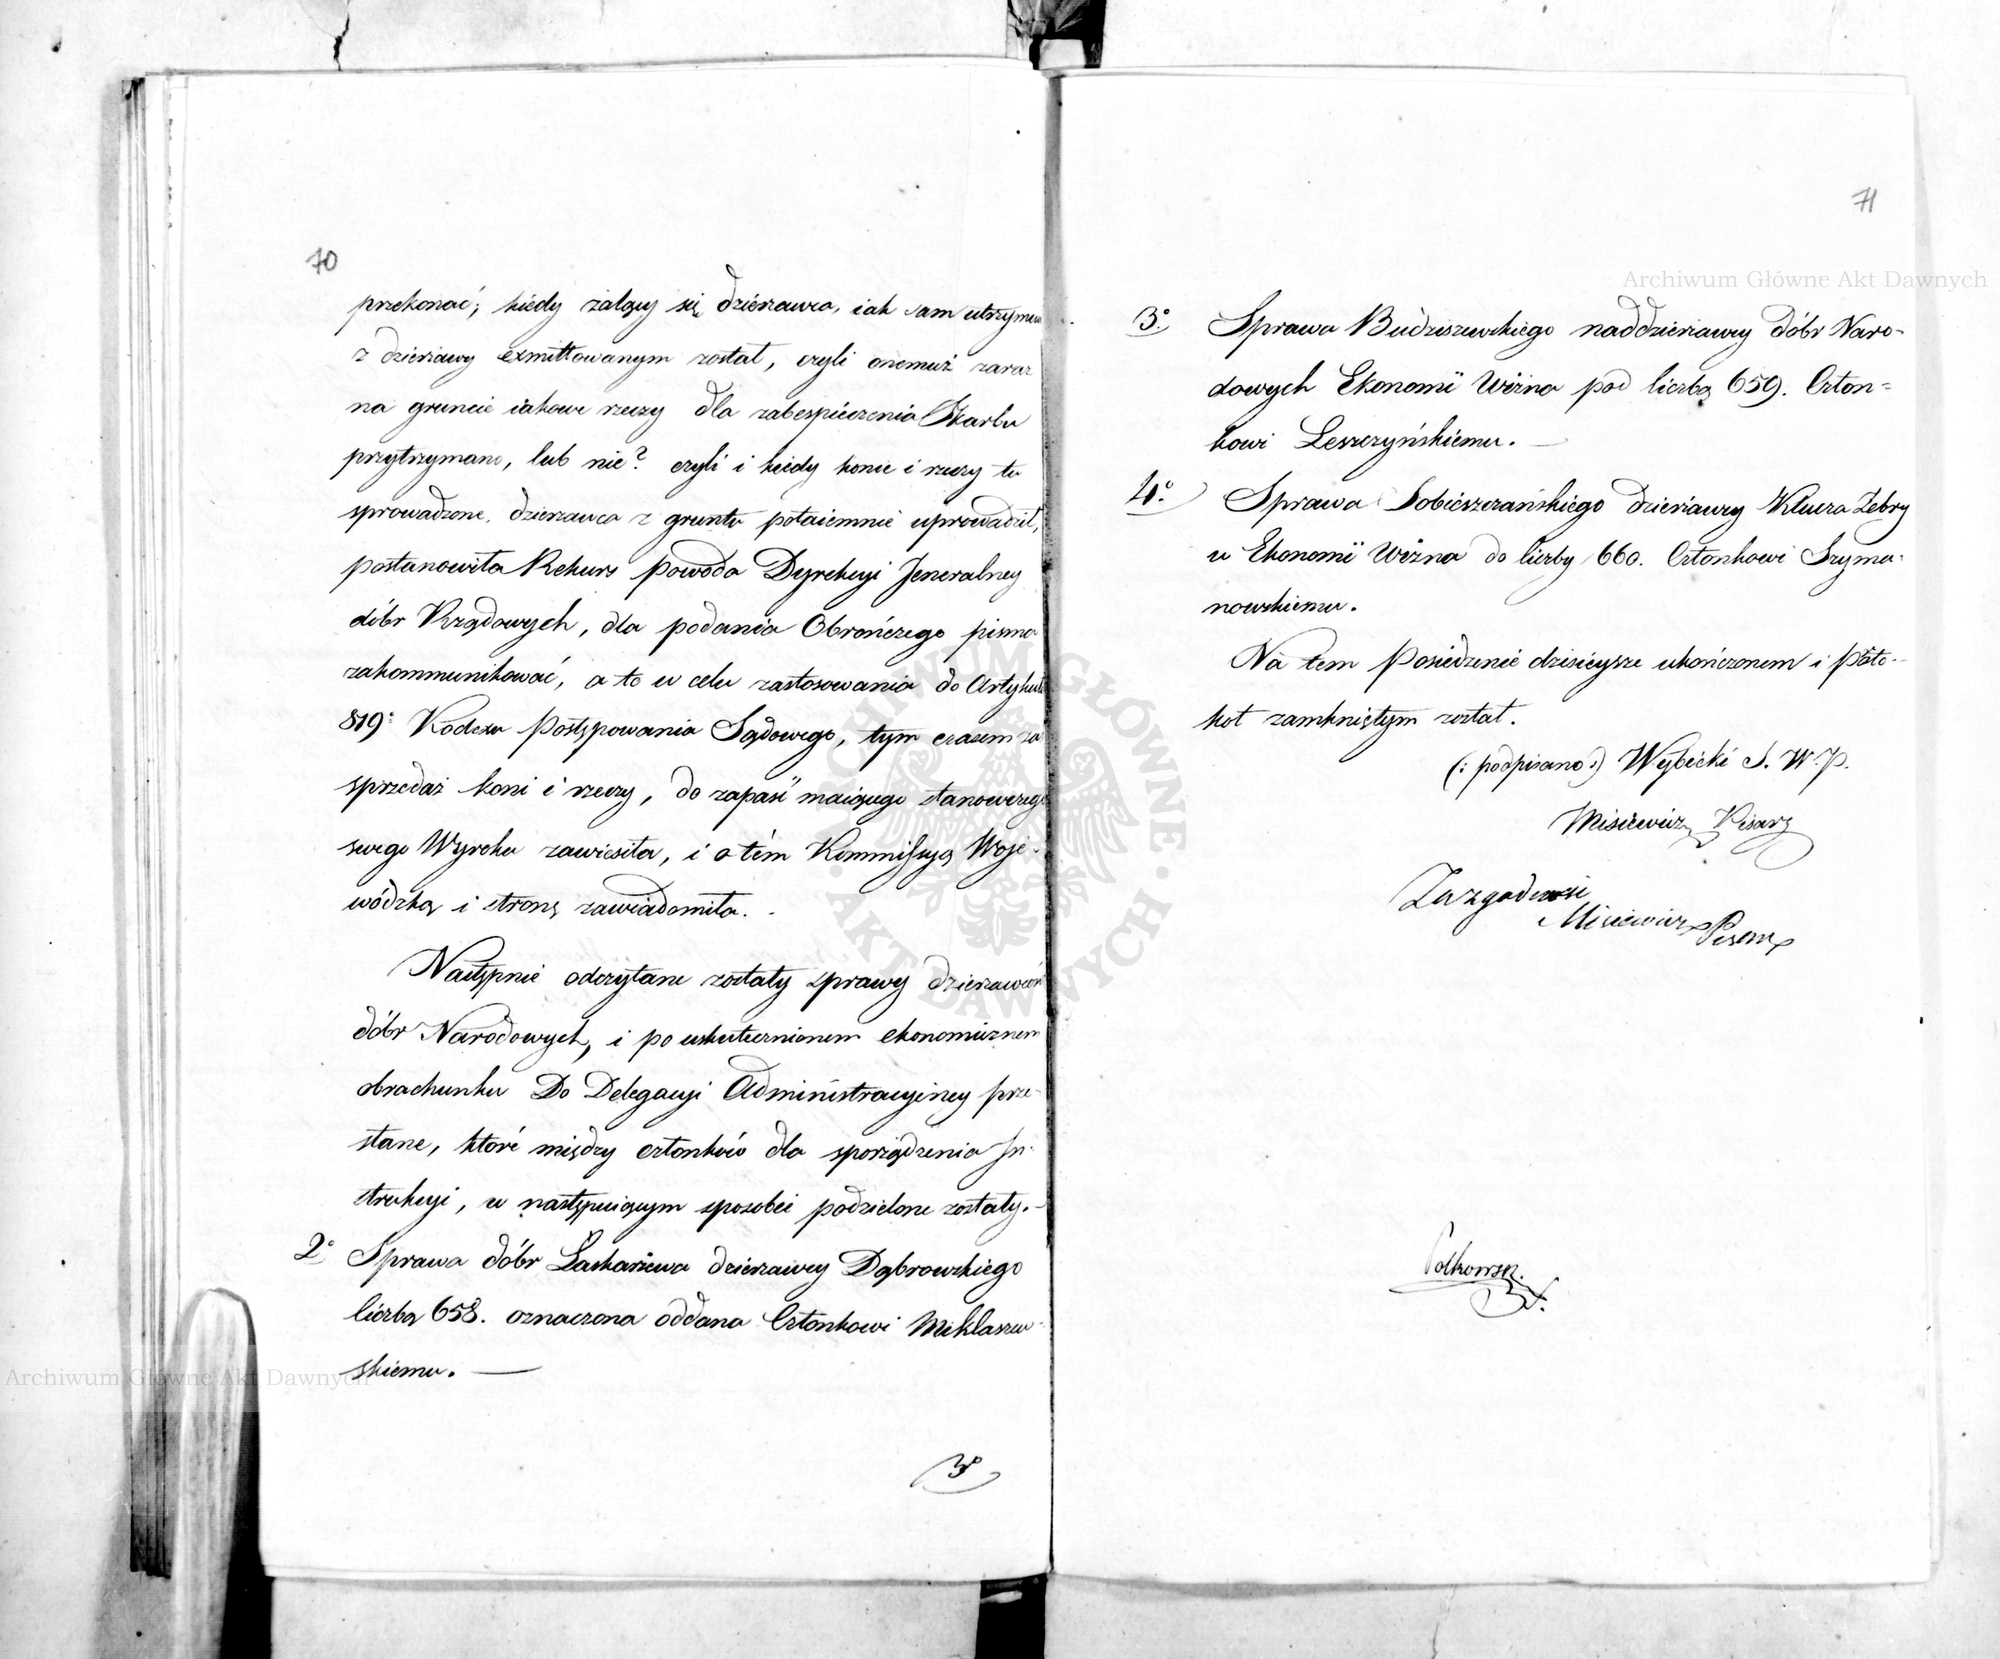 70
przekonać; kiedy żalący się dzierżawca, iak sam utrzymuie
z dzierżawy exmittowanym został, czyli onemuż zaraz
na gruncie iakowe rzeczy dla zabespieczenia Skarbu
przytrzymano, lub nie? czyli i kiedy konie i rzeczy tu
sprowadzone, dzierżawca z gruntu potaiemnie uprowadził,
postanowiła Rekurs powoda Dyrekcyi Jeneralney
dóbr Rządowych, dla podania Obrończego pisma
zakommunikować, a to w celu zastosowania do Artykułu
819° Kodexu Postępowania Sądowego, tym czasem za
sprzedaż koni i rzeczy, do zapaść maiącego stanowczego
swego Wyroku zawiesiła, i o tém Kommissyą Woje-
wódzką i stronę zawiadomiła.
Następnie odczytane zostały sprawy dzierżawców
dóbr Narodowych, i po uskutecznionem ekonomicznem
obrachunku Do Delegacyi Administracyiney prze-
słane, które między członków dla sporządzenia In-
strukcyi, w następuiącym sposobie podzielone zostały.-
2° Sprawa dóbr Łaskarzewa dzierżawcy Dąbrowskiego
liczbą 658. oznaczona oddana Członkowi Miklaszew-
skiemu. —
3°
Archiwum Główne Akt Dawnych
71
Archiwum Główne Akt Dawnych
3° Sprawa Budziszewskiego naddzierżawcy dóbr Naro-
dowych Ekonomii Wizna pod liczbą 659. Człon=
kowi Leszczyńskiemu. —
4° Sprawa Sobieszczańskiego dzierżawcy Klucza Zebry
w Ekonomii Wizna do liczby 660. Członkowi Szyma-
nowskiemu.
Na tem Posiedzenie dzisieysze ukończonem i Proto-
kół zamkniętym został.
(: podpisano :) Wybicki S. W. P.
Misiewicz Pisarz
Za zgodność
Misiewicz Pisarz
ARCHIWUM GŁÓWNE · AKT DAWNYCH ·